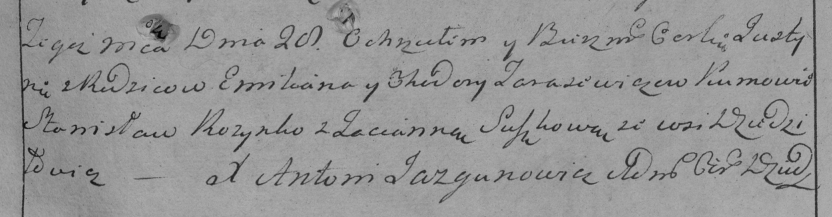 Tegoż mca Dnia 28. Ochrzciłem y Bierzm Corkę Justy
nę z Rodzicow Emiliana y Theodory Tarasewiczow Kumowie
Stanisław Rozynko z Taciannąą Suszkowną ze wsi Dziedzi
łowicz — X Antoni Jazgunowicz Adm Cer Dzied